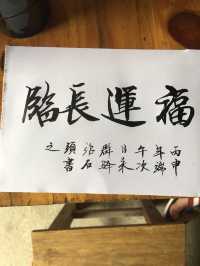 福運長臨
丙申
年端
午次
日來
群
石
頭書
之